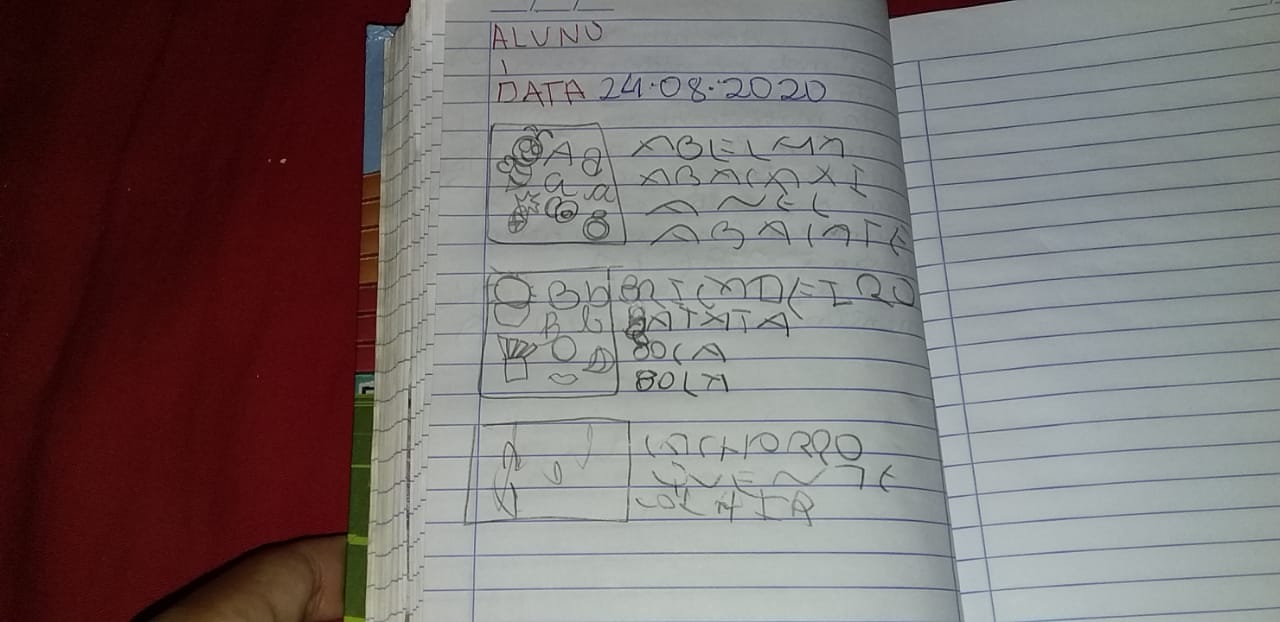 ALUNO
DATA 24.08.2020
A a ABELHA
a a ABACAXI
ANEL
ABACATE
B b BRIGADEIRO
B b BATATA
BOCA
BOLA
CACHORRO
QUENTE
COLAR